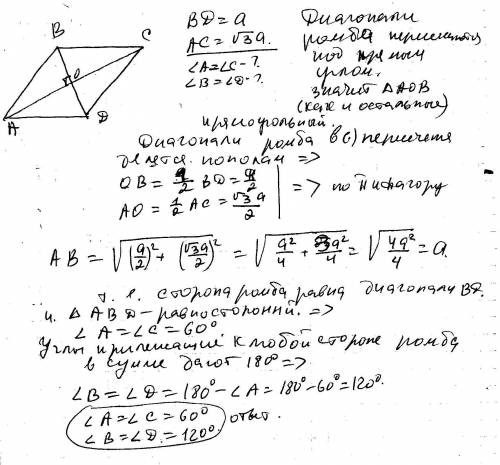 B C
A D
O
BD = a
AC = √3a.
∠A=∠C-?
∠B=∠D-?
Диагонали
ромба пересекаются
под прямым
углом.
значит △AOB
(как и остальные)
прямоугольный.
Диагонали ромба в (·) пересечения
делятся пополам =>
OB = 1/2 BD = a/2
AO = 1/2 AC = √3a/2
=> по Пифагору
AB = √((a/2)² + (√3a/2)²) = √(a²/4 + 3a²/4) = √(4a²/4) = a.
т. е. сторона ромба равна диагонали BD.
и △ ABD - равносторонний. =>
∠A=∠C=60°
Углы прилежащие к любой стороне ромба
в сумме дают 180° =>
∠B=∠D=180°-∠A=180°-60°=120°
∠A=∠C=60°
∠B=∠D=120°
ответ.